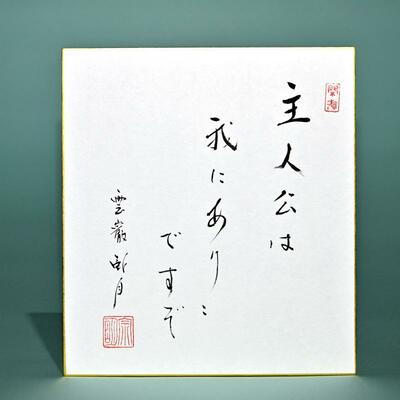 主人公は
我にあり:
ですぞ
雲巌
月